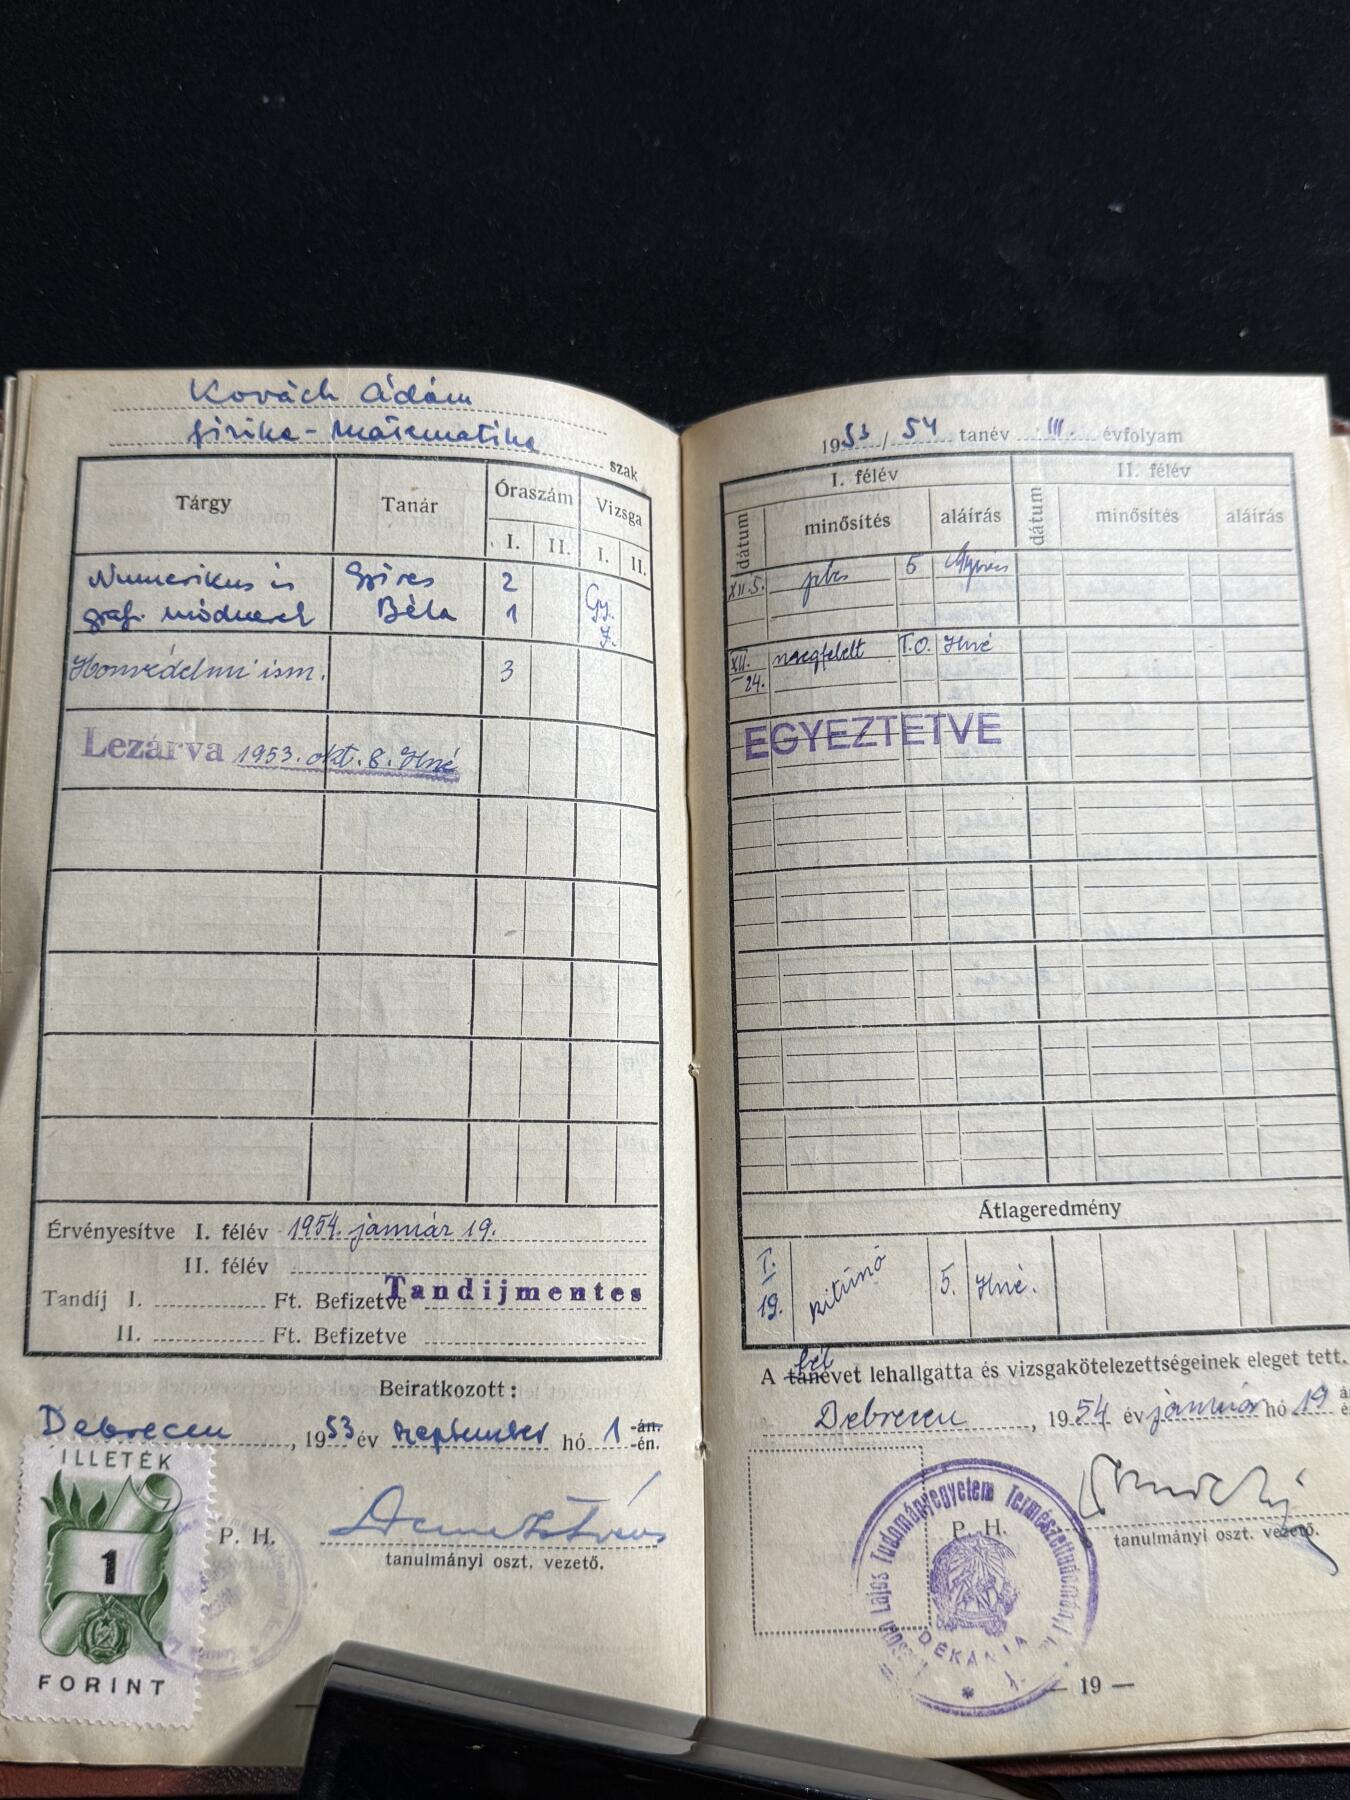 Kovách Ádám
fizika-matematika szak
Tárgy Tanár Óraszám Vizsga
I. II. I. II.
Numerikus és Gyires 2 Gy.
graf. módszerek Béla 1 J.
Honvédelmi ism. 3
Lezárva 1953. okt. 8. Hné
Érvényesítve I. félév 1954. január 19.
II. félév
Tandíjmentes
Tandíj I. Ft. Befizetve
II. Ft. Befizetve
Beiratkozott:
Debrecen, 1953 év szeptember hó 1 -án. -én.
ILLETÉK
1
FORINT
P. H.
tanulmányi oszt. vezető.
1953/54 tanév III. évfolyam
I. félév II. félév
dátum minősítés aláírás dátum minősítés aláírás
XII.5. jeles 5 Gyires
XII. 24. megfelelt T.O. Hné
EGYEZTETVE
Átlageredmény
I. 19. kitűnő 5. Hné.
fél
A tanévet lehallgatta és vizsgakötelezettségeinek eleget tett.
Debrecen, 1954 év január hó 19
P. H.
tanulmányi oszt. vezető.
Kossuth Lajos Tudományegyetem Természettudományi
DÉKÁNIA
— 19 —